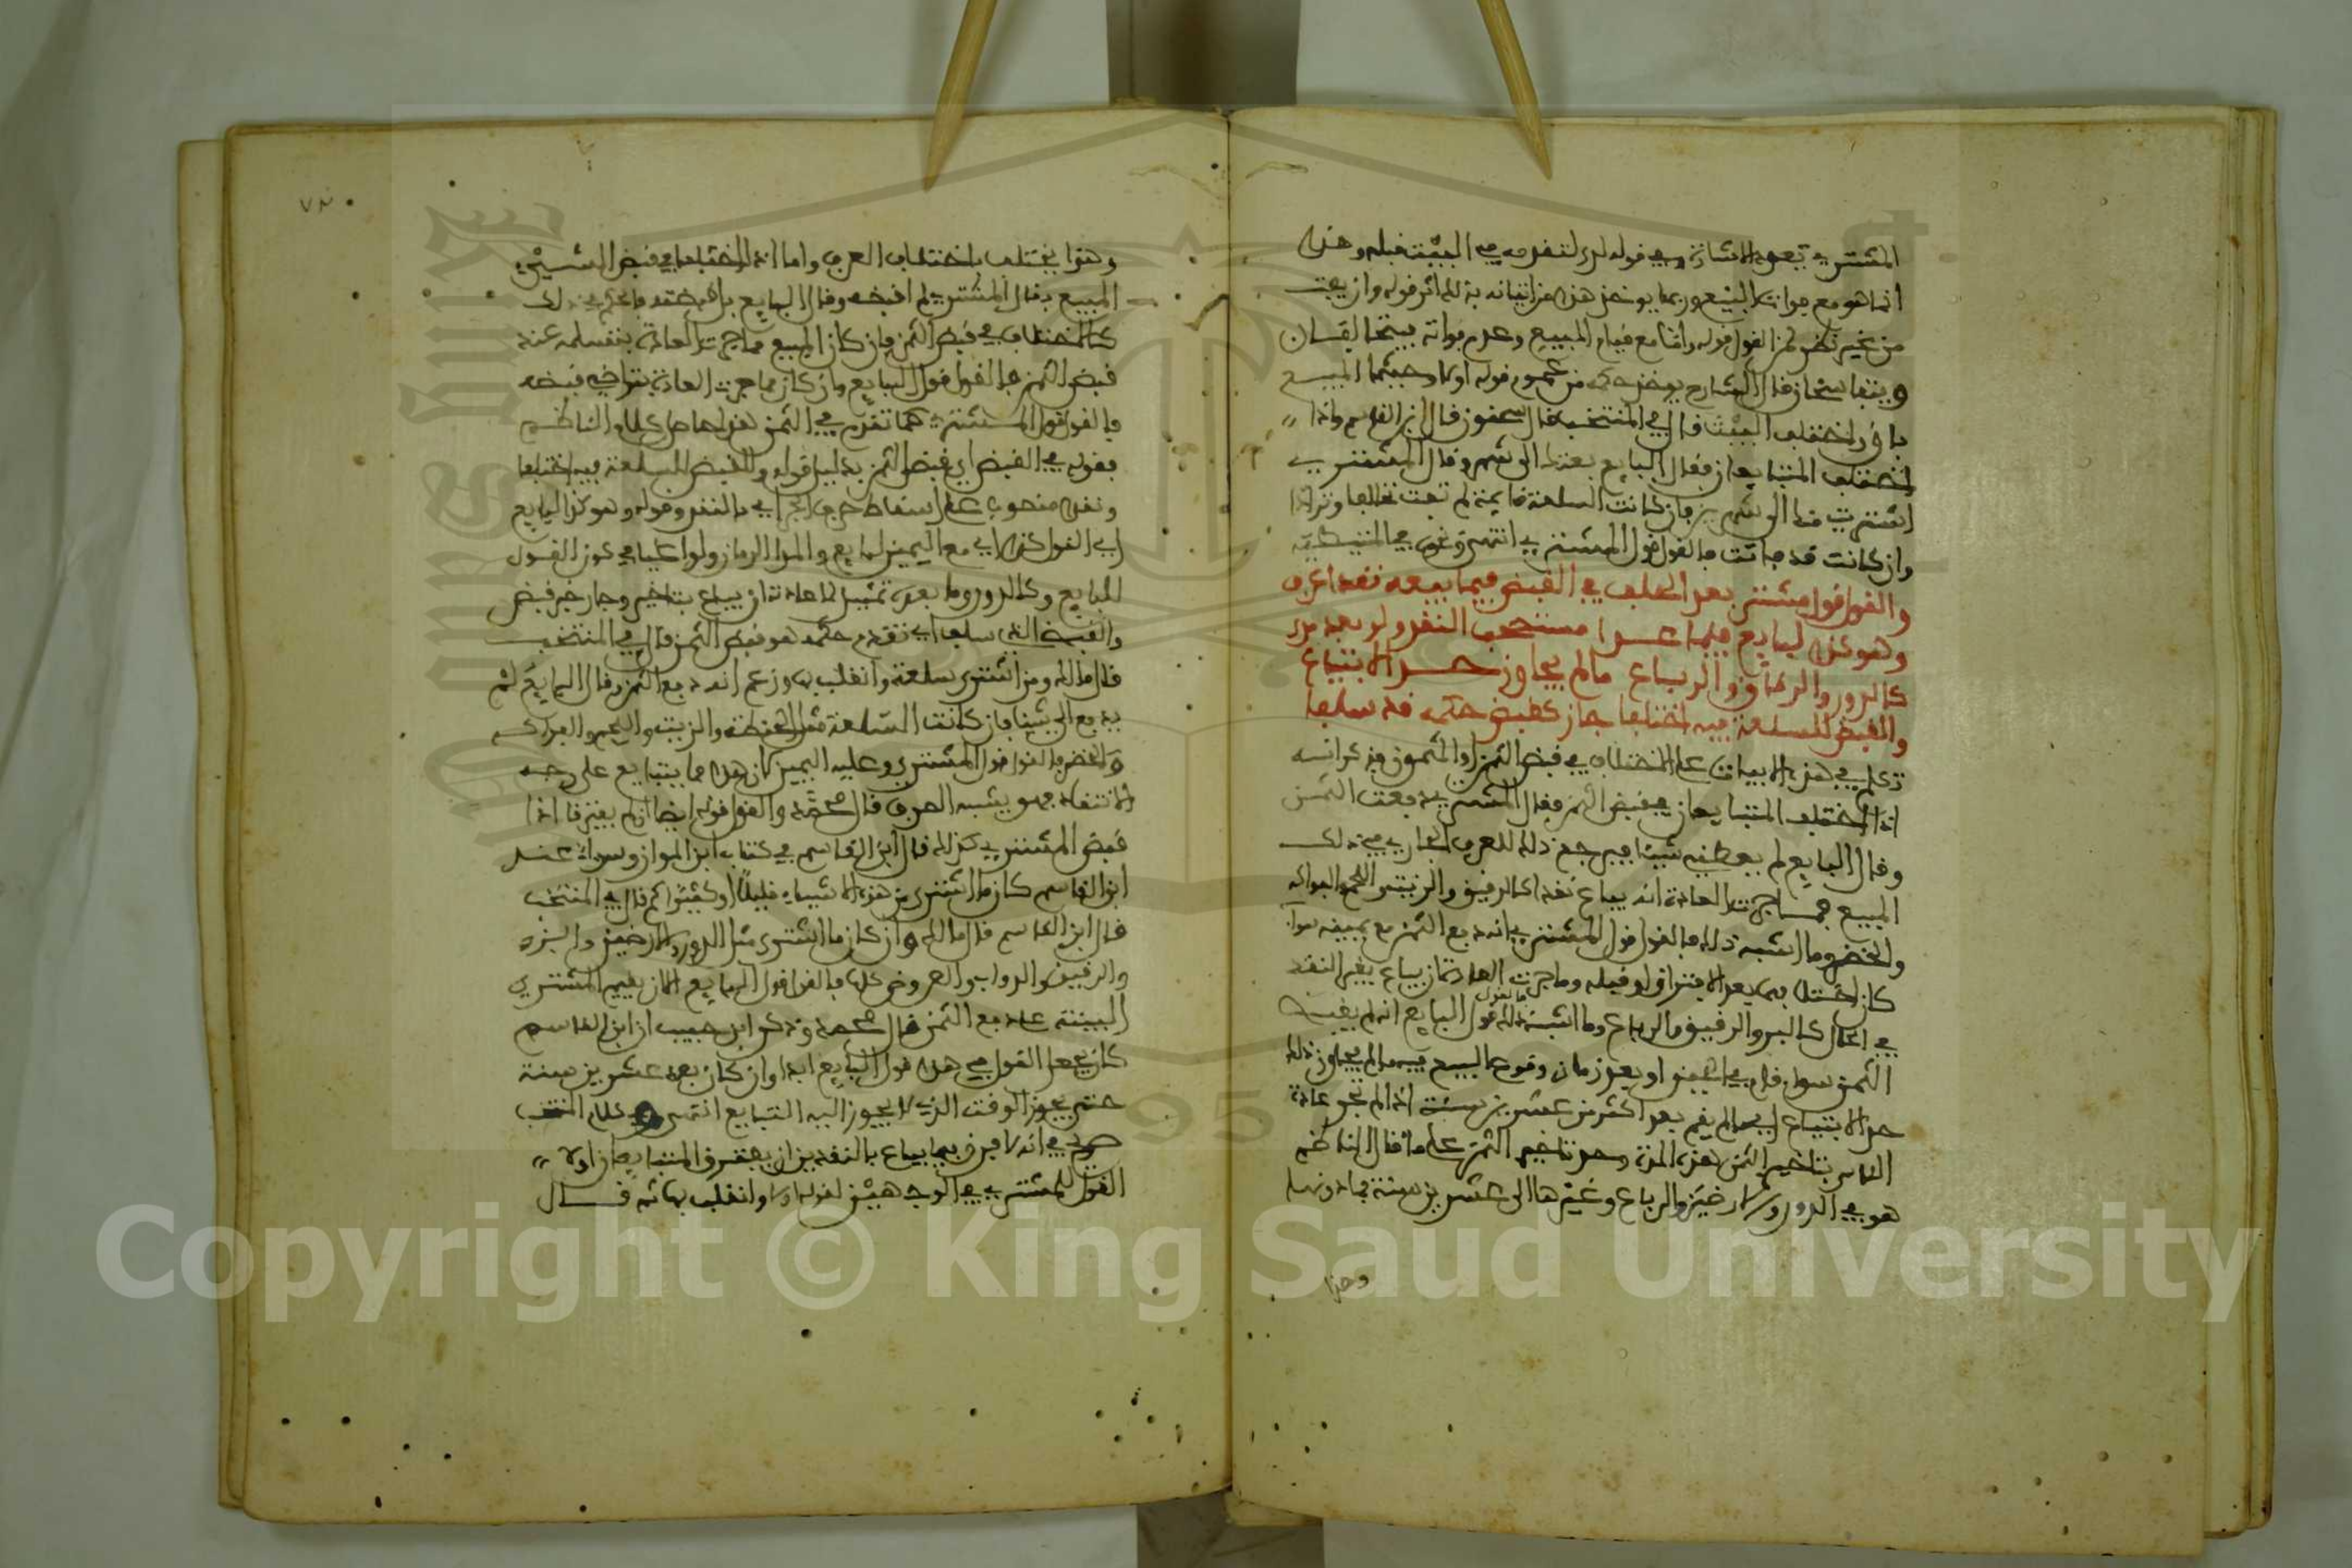 المشتري تعود الاشارة وهي قوله لدى لتقدمه في البيت قبله وهذا
انما هو مع فوات المبيع وربما يوخذ هذا من اتيانه بذلك اثر قوله وان يفت
من غير نظر لمن القول قوله واما مع قيام المبيع وعدم فواته فيتحالفان
ويتفاسخان قال الشارح يوخذ حكمه من عموم قوله اولا وحيثما المبيع
باق واختلف البيت قال في المنتخب قال سحنون قال ابن القاسم واذا
اختلف المتبايعان فقال البايع بعتك الى شهر وقال المشتري
اشتريت منك الى شهرين فان كانت السلعة قايمة لم تفت تحالفا وترادا
وان كانت قد فاتت فالقول قول المشتري انتهى ونحوه في المتيطية
والقول قول مشتر بعد الحلف في القبض فيما بيعه نقدا عرف
وهو كذا لبايع فيما عدا مستصحب النقد ولو بعد مدى
كالدور والرقيق والرباع ما لم يجاوز حد الابتياع
والقبض للسلعة فيه اختلفا جار كقبض حكمه قد سلفا
تكلم في هذه الابيات على الاختلاف في قبض الثمن او المثمون فذكر انه
اذا اختلف المتبايعان في قبض الثمن فقال المشتري دفعت الثمن
وقال البايع لم يعطني شيئا فيرجع ذلك للعرف الجاري في ذلك
المبيع فما جرت العادة انه يباع نقدا كالرقيق والزيت واللحم والفواكه
والخضر وما اشبه ذلك فالقول قول المشتري انه دفع الثمن مع يمينه سواء
كان اختلافهما بعد الافتراق او قبله وما جرت العادة ان يباع بغير النقد
في الحال كالبر والرقيق والرباع وما اشبه ذلك فالقول قول البايع انه لم يقبض
الثمن سواء قام في الحين او بعد زمان وقوع البيع فيه ما لم يجاوز ذلك
حد الابتياع اي ما لم يقم بعد اكثر من عشرين سنة اذ لم تجر عادة
الناس بتاخير الثمن هذه المدة وحد تاخير الثمن على ما قال الناظم
هو في الدور والارضين والرباع وغيرها الى عشرين سنة فما دونها
وهذا
٧٢
وهذا يختلف باختلاف العرف واما اذا اختلفا في قبض الشيء
المبيع فقال المشتري لم اقبضه وقال البايع بل قبضته فالحكم في ذلك
كالاختلاف في قبض الثمن فان كان المبيع مما جرت العادة بتسليمه عند
قبض الثمن فالقول قول البايع وان كان مما جرت العادة بتراخي قبضه
فالقول قول المشتري كما تقدم في الثمن هذا حاصل كلام الناظم
فقوله في القبض اي قبض الثمن بدليل قوله والقبض للسلعة فيه اختلفا
ونقدا منصوب على اسقاط حرف الجر اي بالنقد وقوله وهو كذا لبايع
اي القول كذا اي مع اليمين لبايع والمدا الزمان ولو اغيا في كون القول
للبايع وكالدور وما بعده تمثيل لما عادته ان يباع بتاخير وجار خبر قبض
والقبض الذي سلف اي تقدم حكمه هو قبض الثمن قال في المنتخب
قال مالك ومن اشترى سلعة وانقلب بها وزعم انه دفع الثمن وقال البايع لم
يدفع الي شيئا فان كانت السلعة مثل الحنطة والزيت واللحم والفواكه
والخضر فالقول قول المشتري وعليه اليمين لان هذا مما يتبايع على وجه
الانتقاد فهو يشبه الصرف قال محمد والقول قوله ايضا ان لم يفترقا اذا
قبض المشتري كذلك قال ابن القاسم في كتاب ابن المواز وسواء عند
ابن القاسم كان ما اشترى من هذه الاشياء قليلا او كثيرا ثم قال في المنتخب
قال ابن القاسم قال مالك وان كان ما اشترى مثل الدور والارضين والبز
والرقيق والدواب والعروض كلها فالقول قول البايع الا ان يقيم المشتري
البينة على دفع الثمن قال محمد وذكر ابن حبيب ان ابن القاسم
كان يجعل القول في هذا قول البايع ابدا وان كان بعد عشرين سنة
حتى يجوز الوقت الذي لا يجوز اليه التبايع انتهى وفي كلام المنتخب
صريح في انه لا فرق فيما يباع بالنقد بين ان يفترق المتبايعان اولا
القول للمشتري في الوجهين لقوله اولا وانقلب بها ثم قال
Copyright © King Saud University